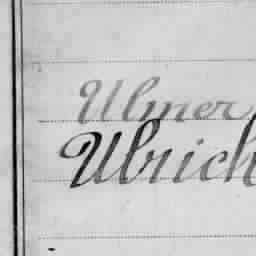 Ulmer
Ulrich